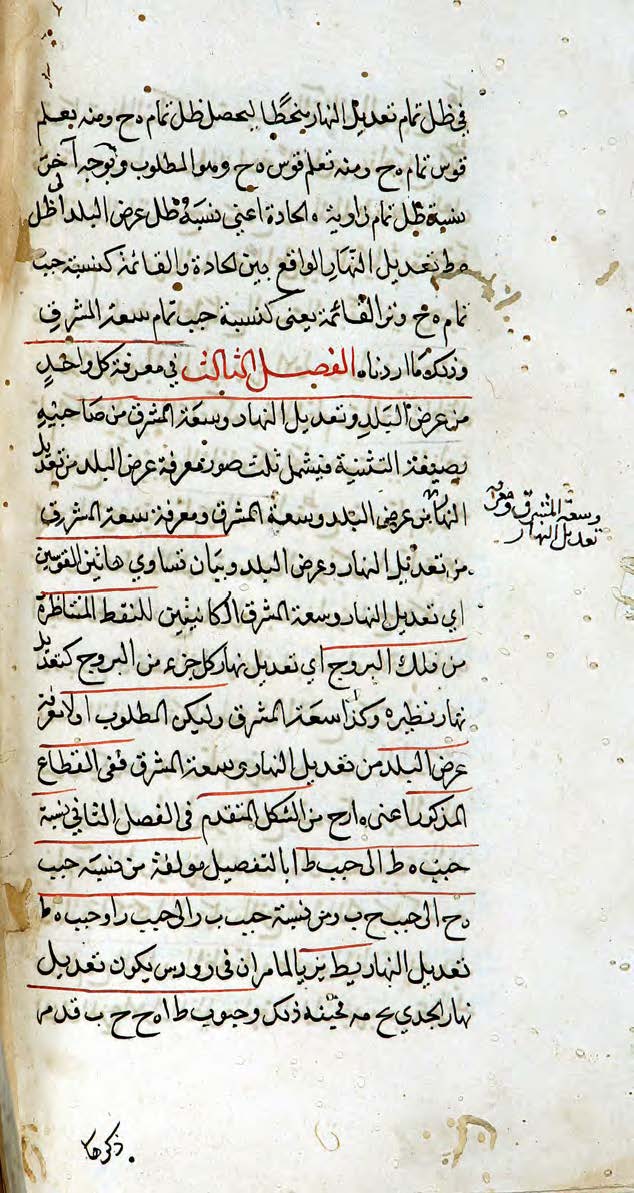 في ظل تمام تعديل النهار منحطا ليحصل ظل تمام ه ح ومنه يعلم
قوس تمام ه ح ومنه تعلم قوس ه ح وهو المطلوب وبوجه آخر
نسبة ظل تمام زاوية ه الحادة اعني نسبة ظل عرض البلد الى ظل
ه ط تعديل النهار الواقع بين الحادة والقائمة كنسبة جيب
تمام ه ح وتر القائمة يعني كنسبة جيب تمام سعة المشرق
وذلك ما اردناه الفصل الثالث في معرفة كل واحد
من عرض البلد وتعديل النهار وسعة المشرق من صاحبيه
بصيغة التثنية فيشمل ثلث صور معرفة عرض البلد من تعديل
النهار من عرض البلد وسعة المشرق ومعرفة سعة المشرق
من تعديل النهار وعرض البلد وبيان تساوي هاتين القوسين
اي تعديل النهار وسعة المشرق الكائنتين للنقط المتناظرة
من فلك البروج اي تعديل نهار كل جزء من البروج كتعديل
نهار نظيره وكذا سعة المشرق وليكن المطلوب اولا معرفة
عرض البلد من تعديل النهار وسعة المشرق ففي القطاع
المذكور اعني ه ا ر ح من الشكل المتقدم في الفصل الثاني نسبة
جيب ه ط الى جيب ط ا بالتفصيل مولفة من نسبة جيب
ه ح الى جيب ح ب ومن نسبة جيب ب ر الى جيب ر ا وجيب ه ط
تعديل النهار يط يز يا لما مر ان في رودس يكون تعديل
نهار الجدي يح مه فجيبه ذلك وجيوب ط ا ه ح ح ب قد مر
وسعة المشرق ومعرفة
تعديل النهار
ذكرها